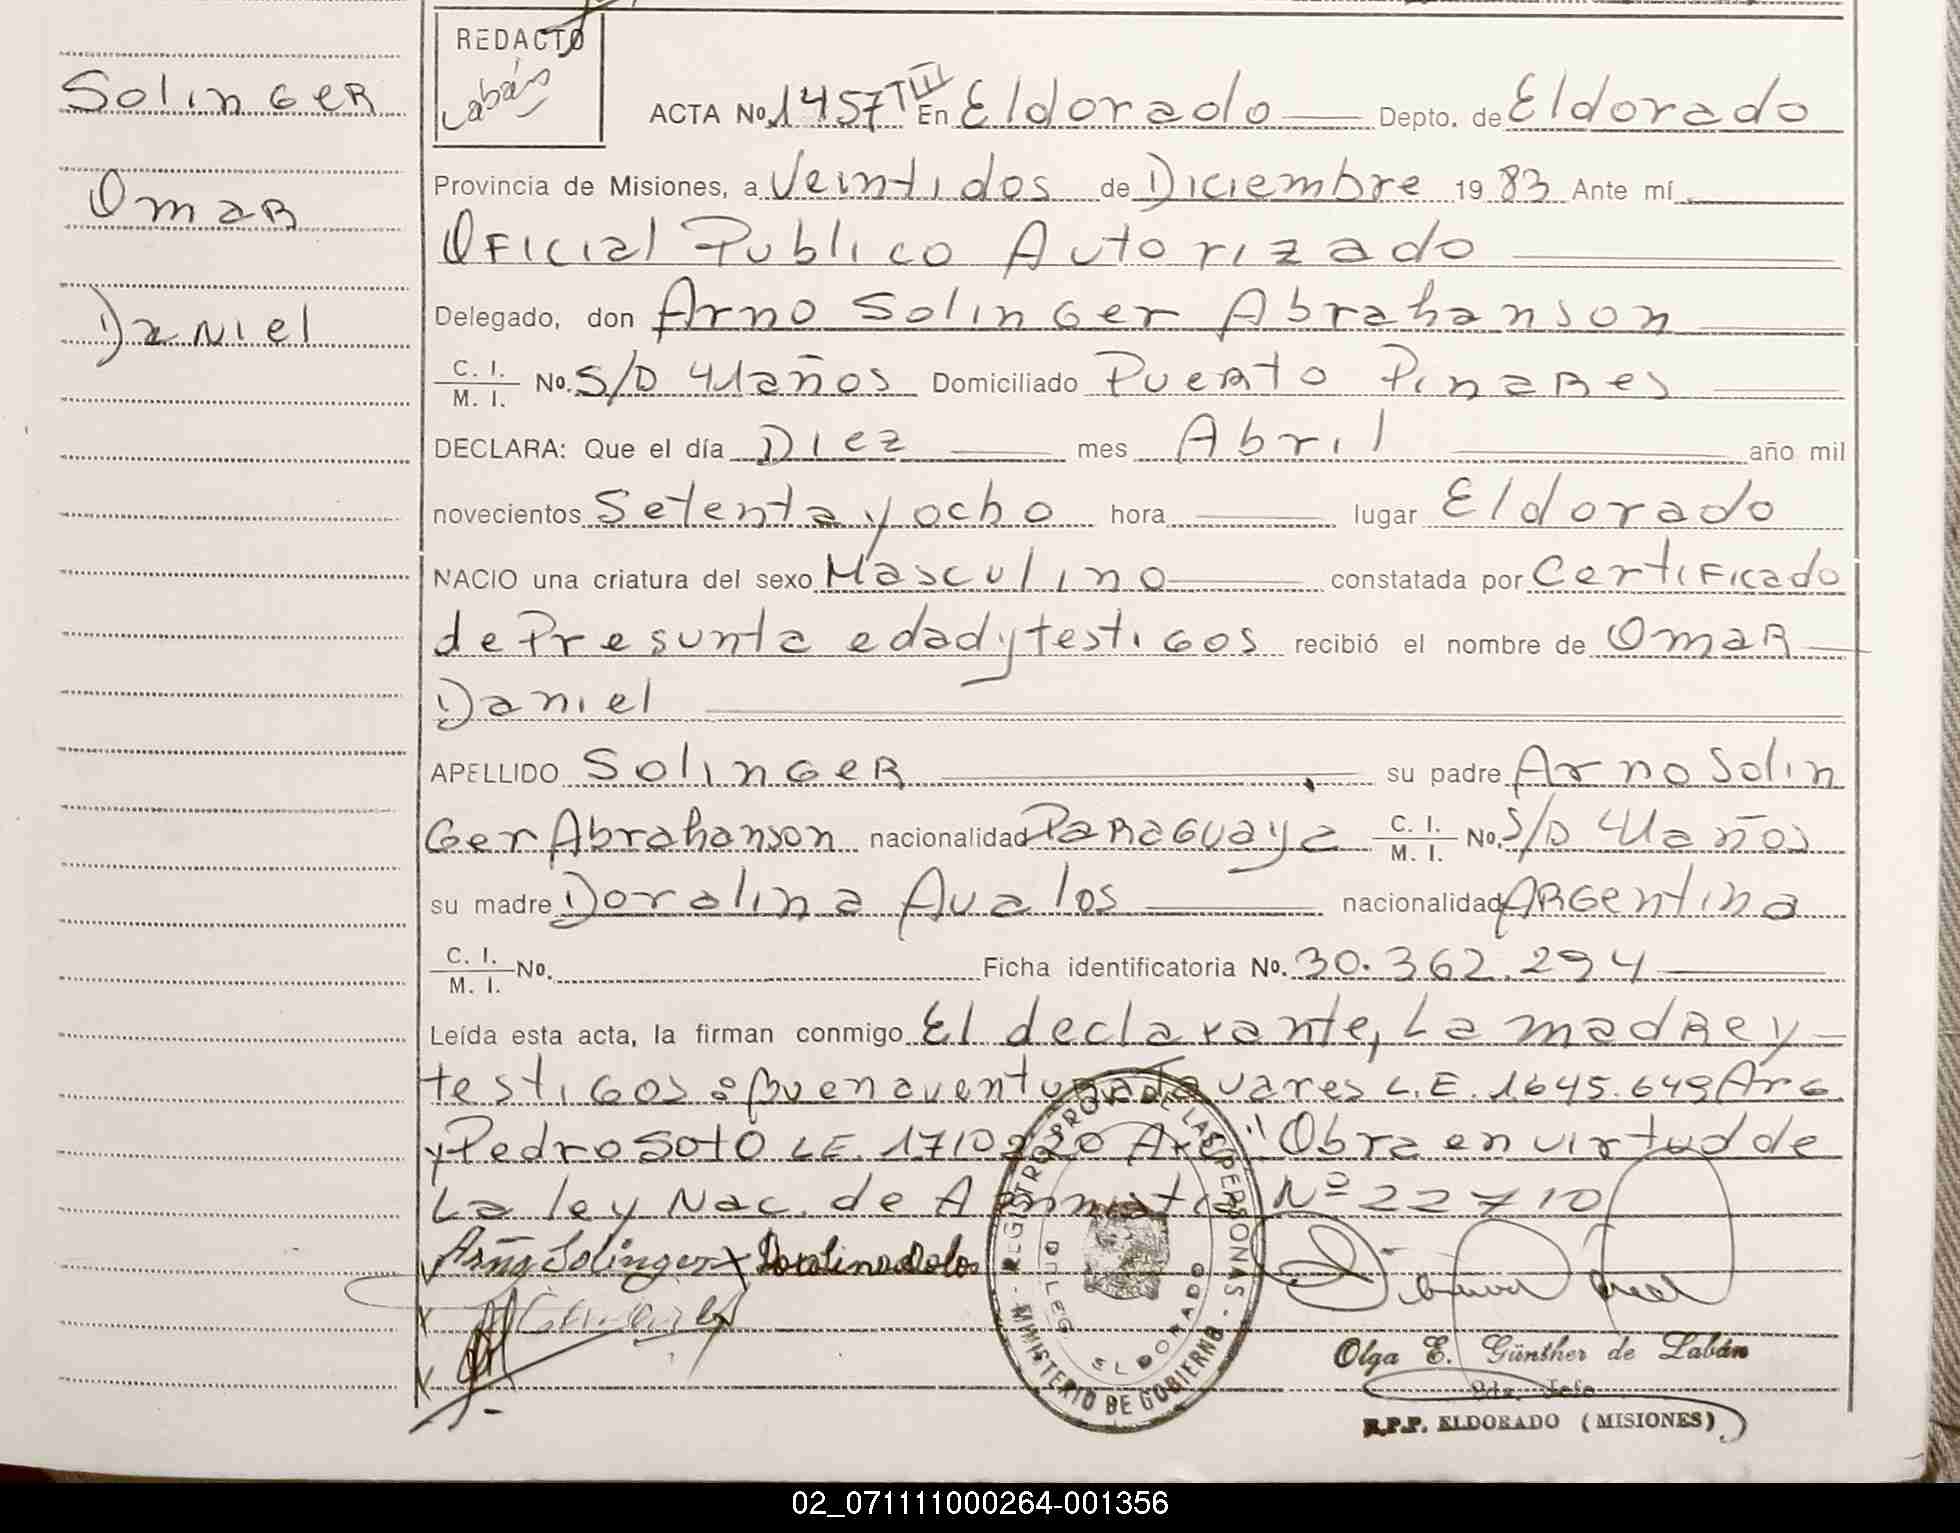 Solinger
Omar
Daniel
REDACTO
Labán
ACTA No. 1457 TIII En Eldorado Depto. de Eldorado
Provincia de Misiones, a Veintidos de Diciembre 19 83 Ante mí
Oficial Publico Autorizado
Delegado, don Arno Solinger Abrahanson
C. I. / M. I. No. S/D 41 años Domiciliado Puerto Pinares
DECLARA: Que el día Diez mes Abril año mil
novecientos Setenta y ocho hora lugar Eldorado
NACIO una criatura del sexo Masculino constatada por Certificado
de Presunta edad y testigos recibió el nombre de Omar
Daniel
APELLIDO Solinger su padre Arno Solin
ger Abrahanson nacionalidad Paraguaya C. I. / M. I. No. S/D 41 años
su madre Doralina Avalos nacionalidad Argentina
C. I. / M. I. No. Ficha identificatoria No. 30.362.294
Leída esta acta, la firman conmigo El declarante, La madre y
testigos: Buenaventura Tavares L.E. 1.645.649 Arg.
y Pedro Soto LE. 1710220 Arg. "Obra en virtud de
La ley Nac. de Amnistia Nº 22710
Solinger
REGISTRO PROV. DE LAS PERSONAS
DELEG. ELDORADO
MINISTERIO DE GOBIERNO
Olga E. Günther de Labán
Jefe
R.P.P. ELDORADO (MISIONES)
02_071111000264-001356